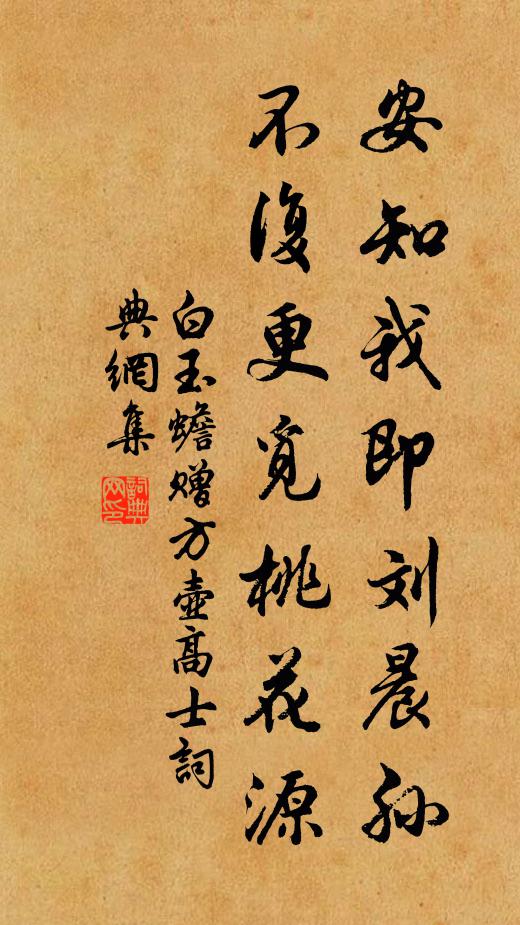 安知我即刘晨孙
不復更覓桃花源
白玉蟾赠方壺高士詞
典網集
詞典网印